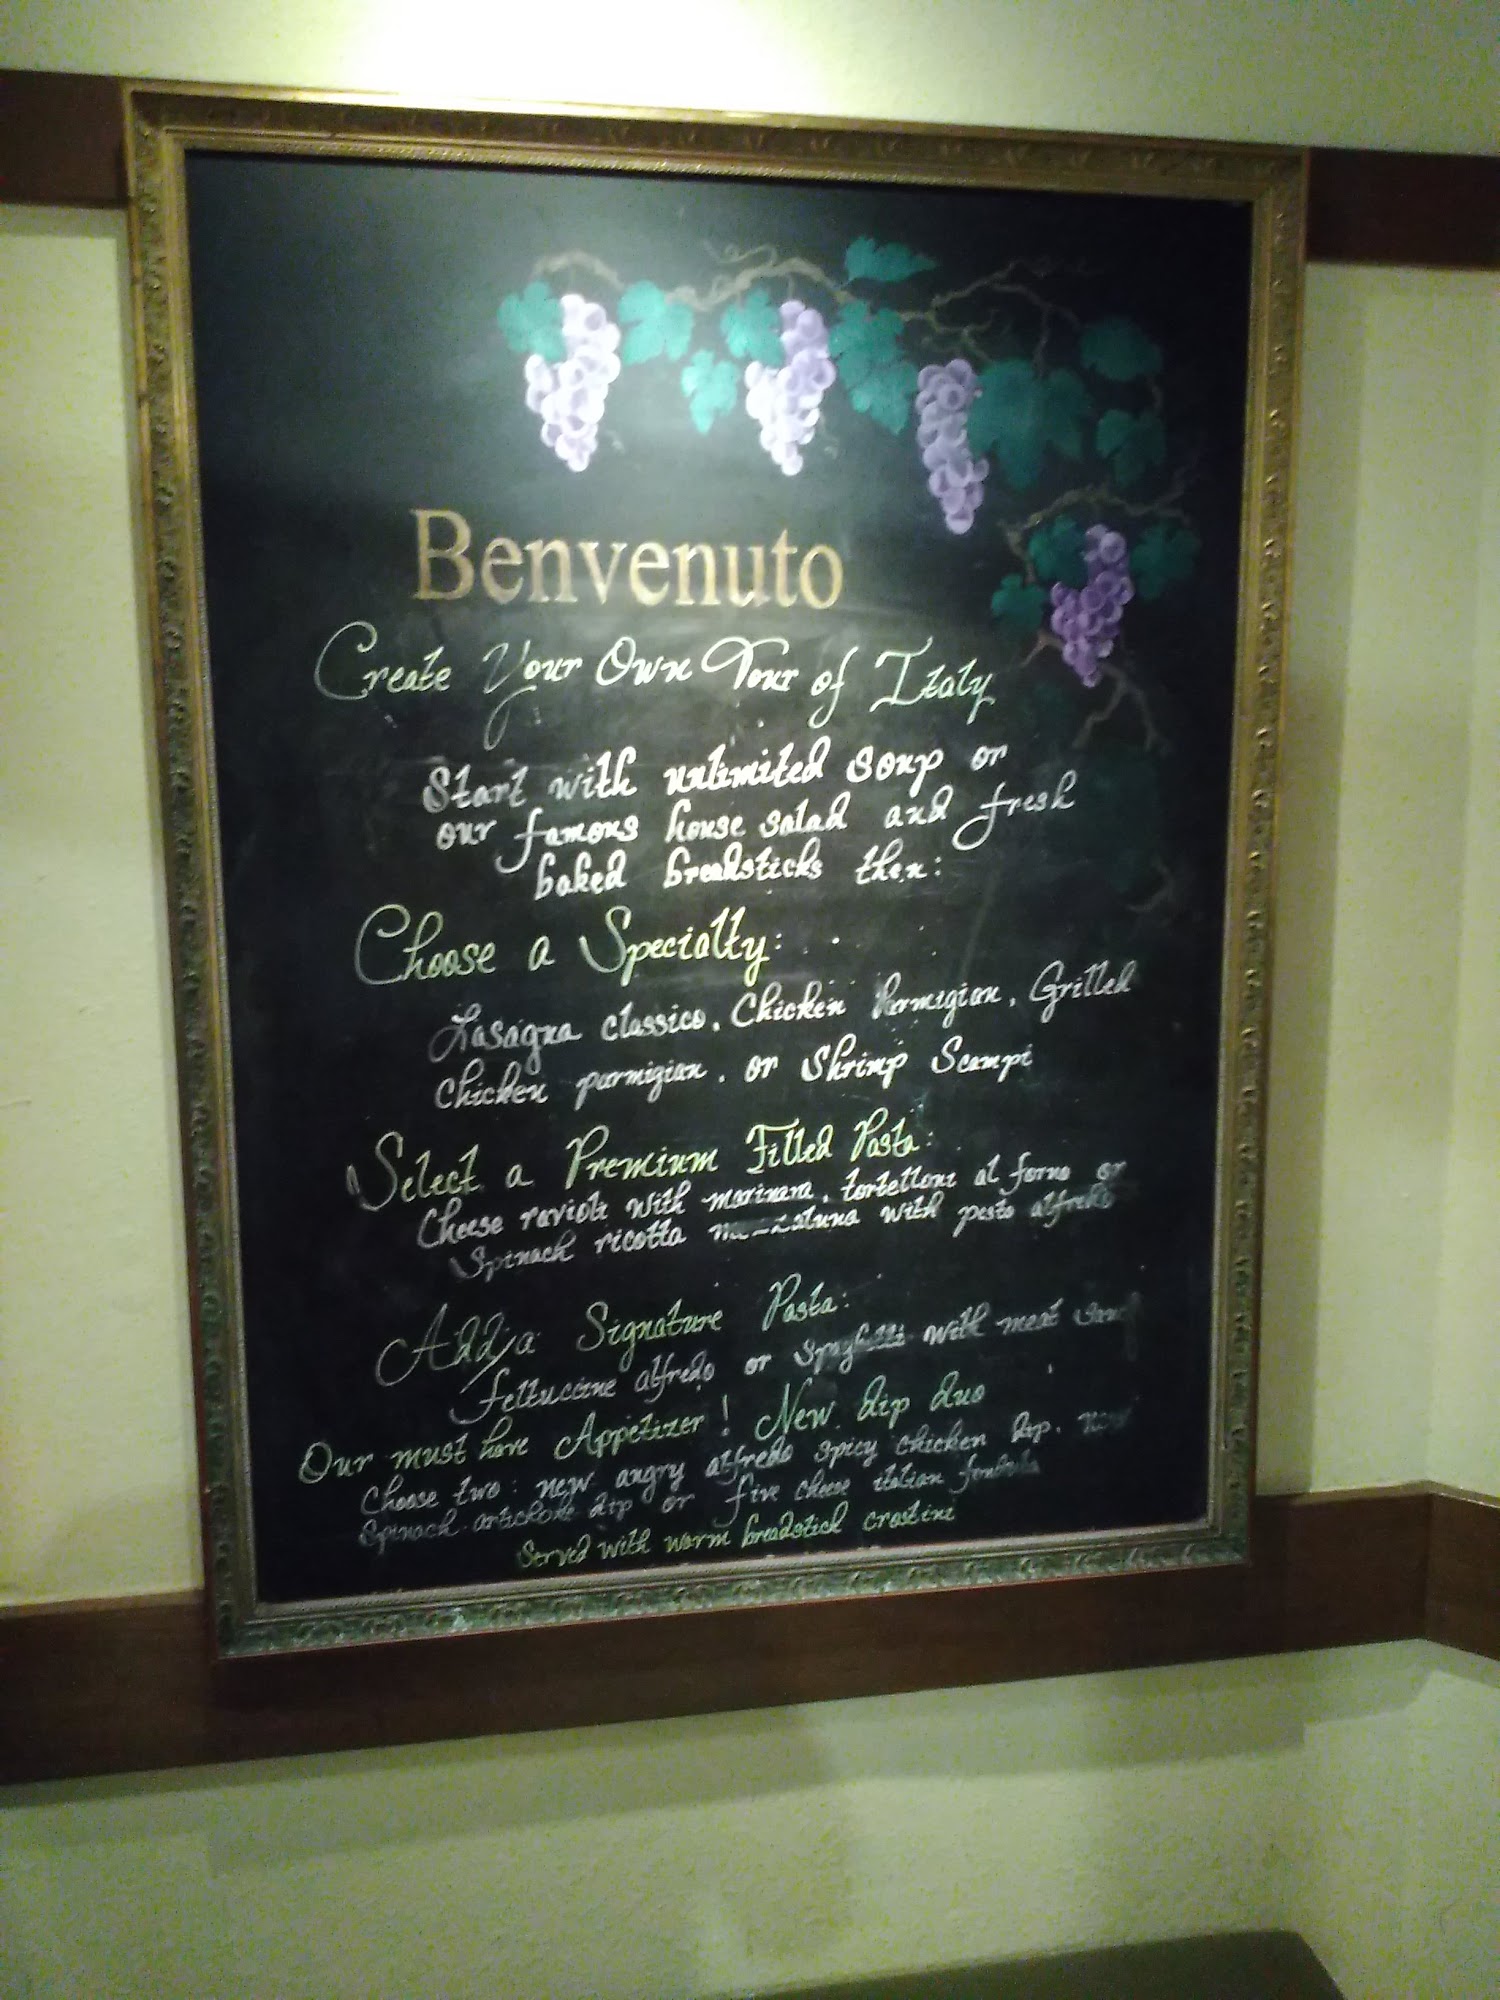 Benvenuto
Create Your Own Tour of Italy
Start with unlimited soup or
our famous house salad and fresh
baked breadsticks then:
Choose a Specialty:
Lasagna classico, Chicken Parmigian, Grilled
Chicken parmigian, or Shrimp Scampi
Select a Premium Filled Pasta:
Cheese ravioli with marinara, tortelloni al forno or
Spinach ricotta with pesto alfredo
Add a Signature Pasta:
fettuccine alfredo or spaghetti with meat
Our must have Appetizer! New dip duo
Choose two: new angry alfredo spicy chicken dip, new
Spinach artichoke dip or five cheese italian fonduta
Served with warm breadstick crostini